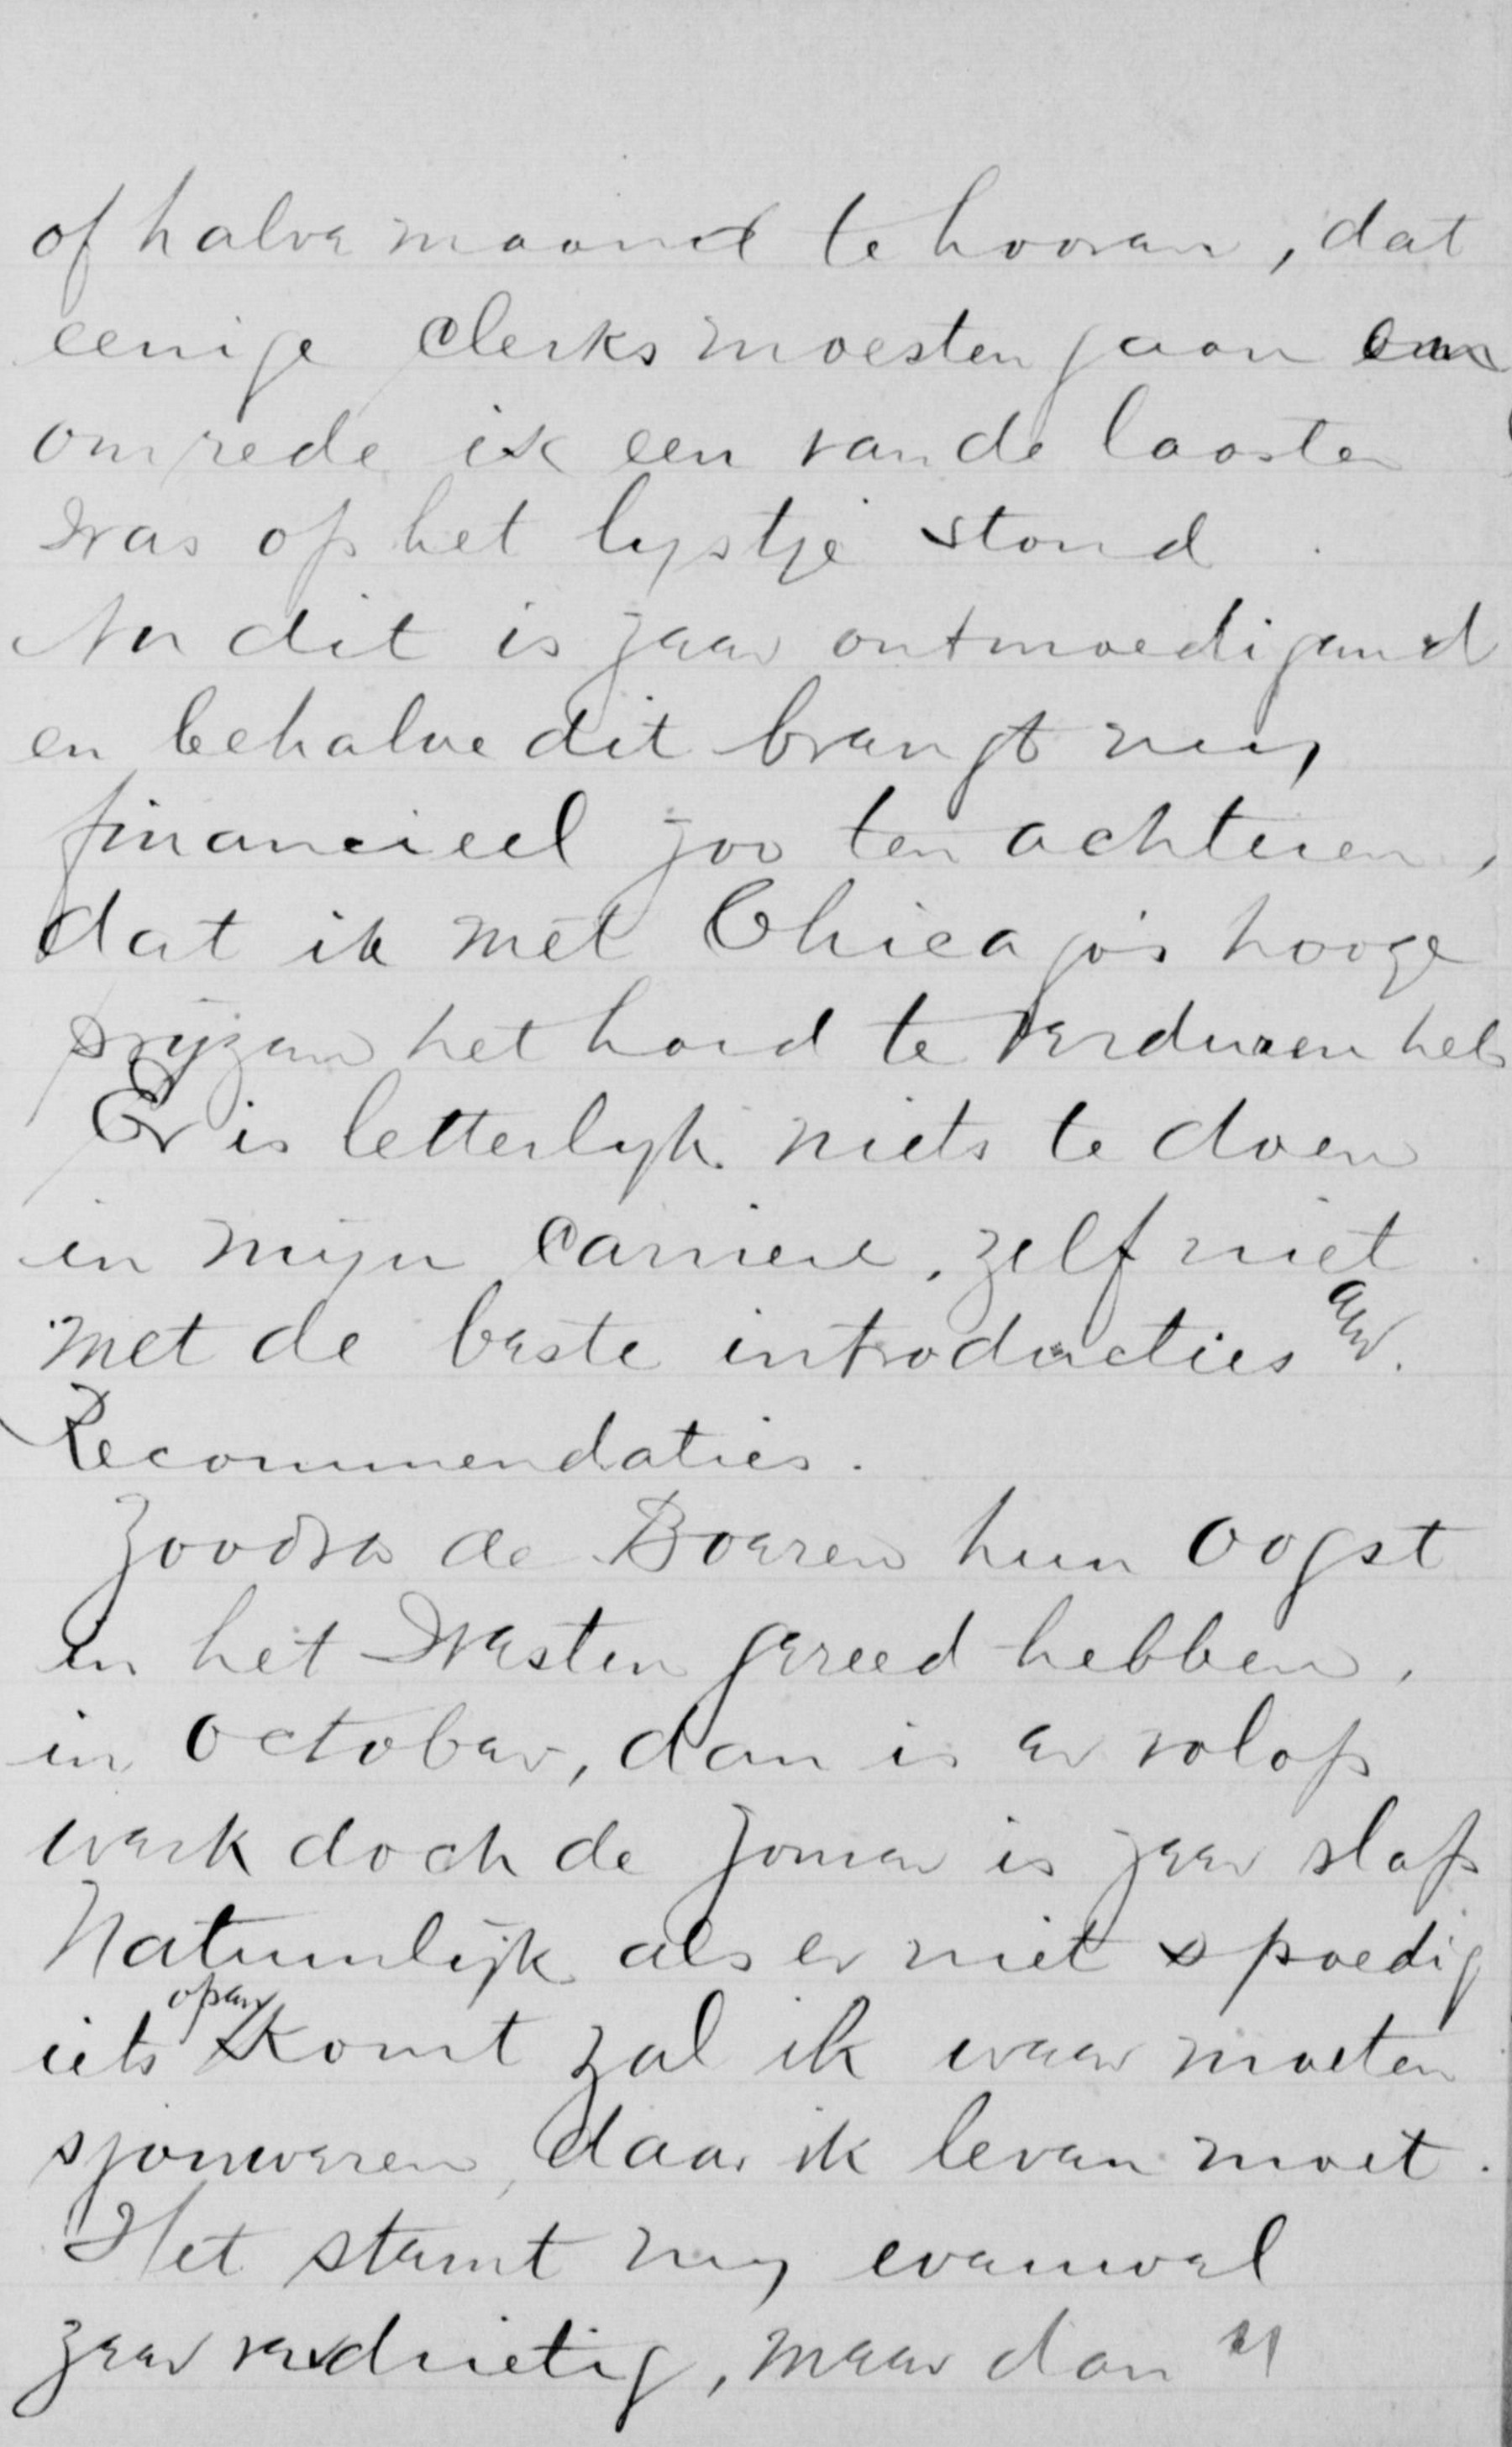 of halve maand te hooren, dat
eenige clerks moesten gaan
omrede ik een van de laatsten
was op het lystje stond.
Nu dit is zeer ontmoedigend
en behalve dit brengt my
financieel zoo ten achteren,
dat ik met Chicago's hooge
prijzen het hard te verduren heb
Er is letterlyk niets te doen
in mijn carriere, zelf niet
met de beste introducties en.
Recommendaties.
Zoodra de Boeren hun oogst
in het Westen gereed hebben,
in october, dan is er volop
werk doch de zomer is zeer slap
Natuurlijk als er niet spoedig
iets open komt zal ik weer moeten
sjouweren, daar ik leven moet.
Het stemt my evenwel
zeer verdrietig, maar dan